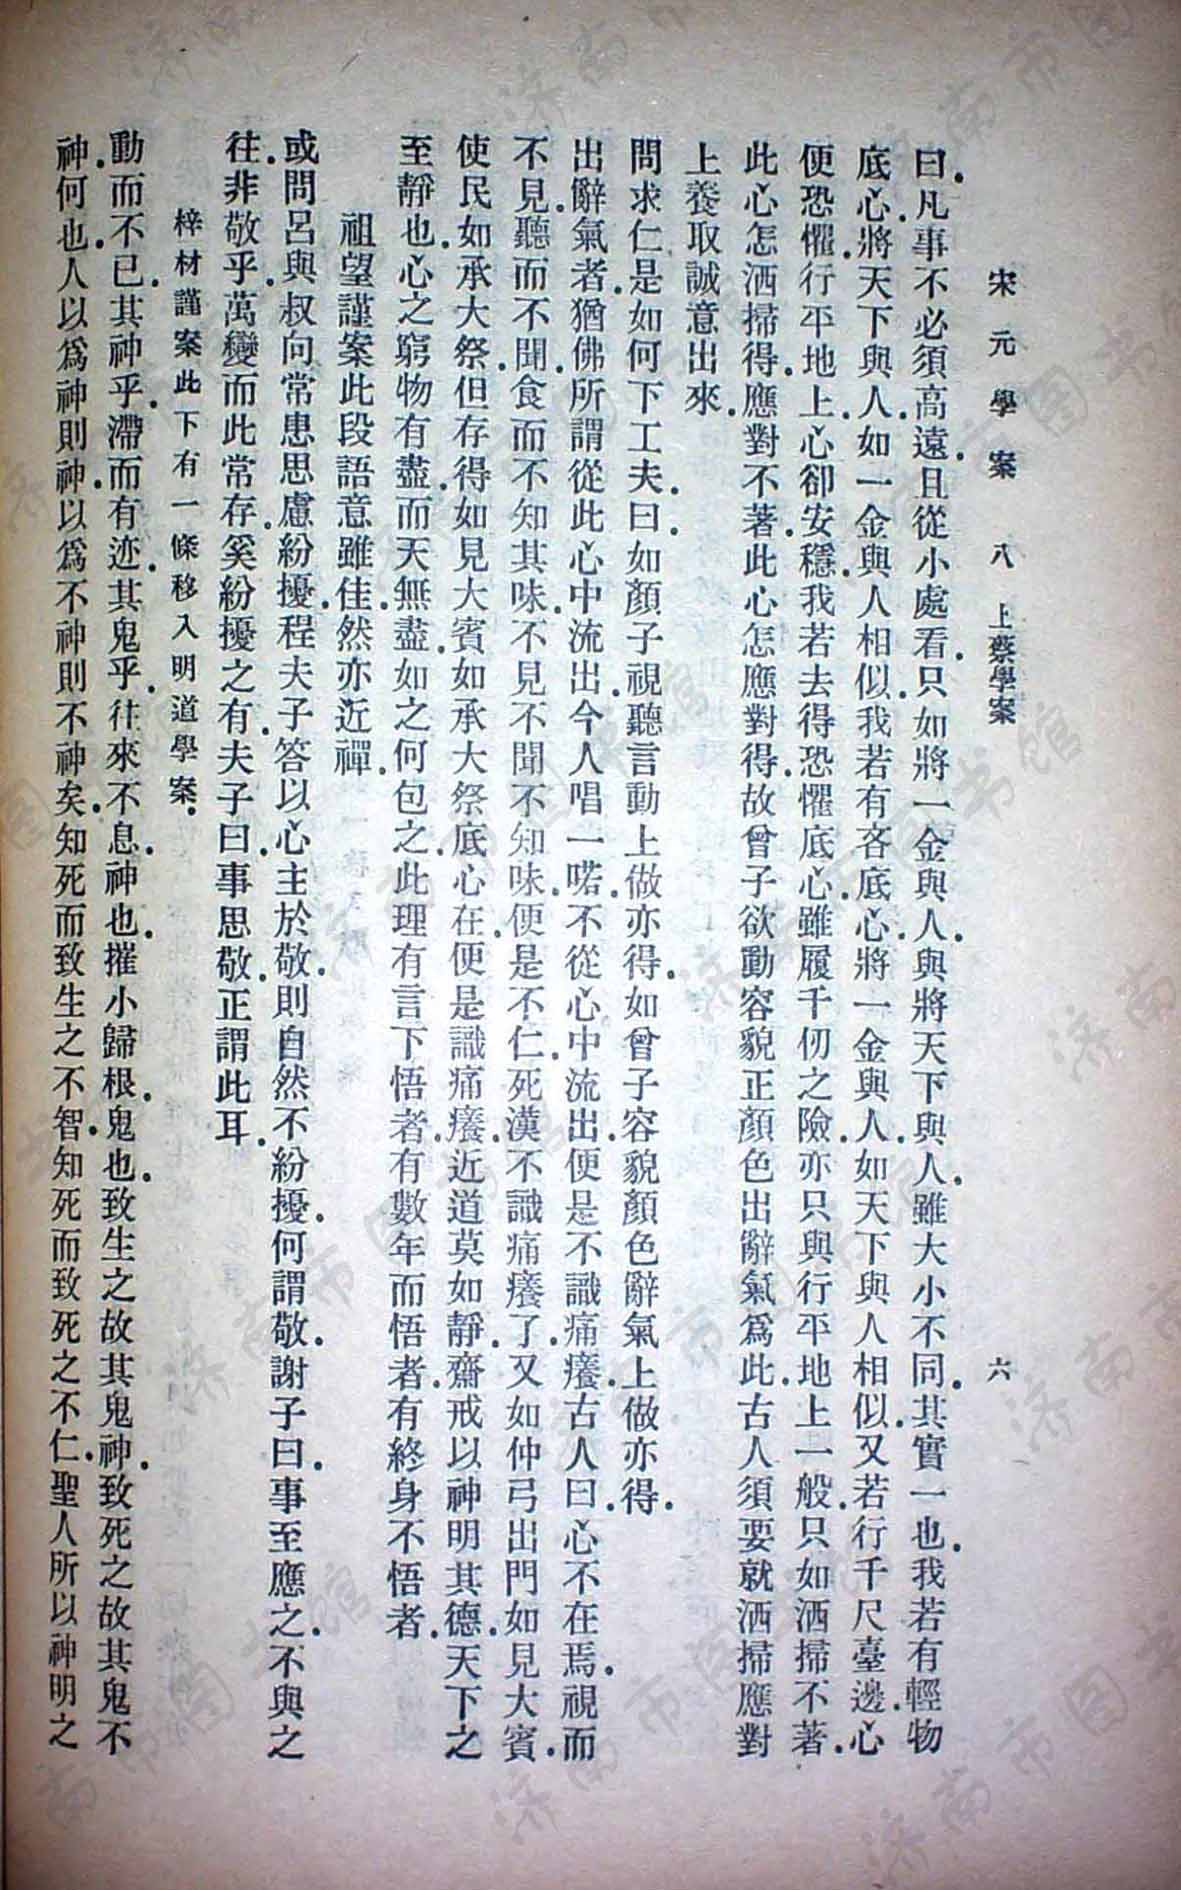 宋元學案 八 上蔡學案 六
曰.凡事不必須高遠.且從小處看.只如將一金與人.與將天下與人.雖大小不同.其實一也.我若有輕物
底心.將天下與人.如一金與人相似.我若有吝底心.將一金與人.如天下與人相似.又若行千尺臺邊.心
便恐懼.行平地上.心卻安穩.我若去得恐懼底心.雖履千仞之險.亦只與行平地上一般.只如洒掃.不著
此心.怎洒掃得.應對不著此心.怎應對得.故曾子欲動容貌正顏色出辭氣爲此.古人須要就洒掃應對
上養取誠意出來.
問求仁是如何下工夫.曰.如顏子視聽言動上做亦得.如曾子容貌顏色辭氣上做亦得.
出辭氣者.猶佛所謂從此心中流出.今人唱一喏.不從心中流出.便是不識痛癢.古人曰.心不在焉.視而
不見.聽而不聞.食而不知其味.不見不聞不知味.便是不仁.死漢不識痛癢了.又如仲弓出門如見大賓.
使民如承大祭.但存得如見大賓如承大祭底心在.便是識痛癢.近道莫如靜.齋戒以神明其德.天下之
至靜也.心之窮物有盡.而天無盡.如之何包之.此理有言下悟者.有數年而悟者.有終身不悟者.
祖望謹案此段語意雖佳.然亦近禪.
或問呂與叔向常患思慮紛擾.程夫子答以心主於敬.則自然不紛擾.何謂敬.謝子曰.事至應之.不與之
往.非敬乎.萬變而此常存.奚紛擾之有.夫子曰.事思敬.正謂此耳.
梓材謹案此下有一條移入明道學案.
動而不已.其神乎.滯而有迹.其鬼乎.往來不息.神也.摧小歸根.鬼也.致生之故其鬼神.致死之故其鬼不
神.何也.人以爲神則神.以爲不神則不神矣.知死而致生之不智.知死而致死之不仁.聖人所以神明之